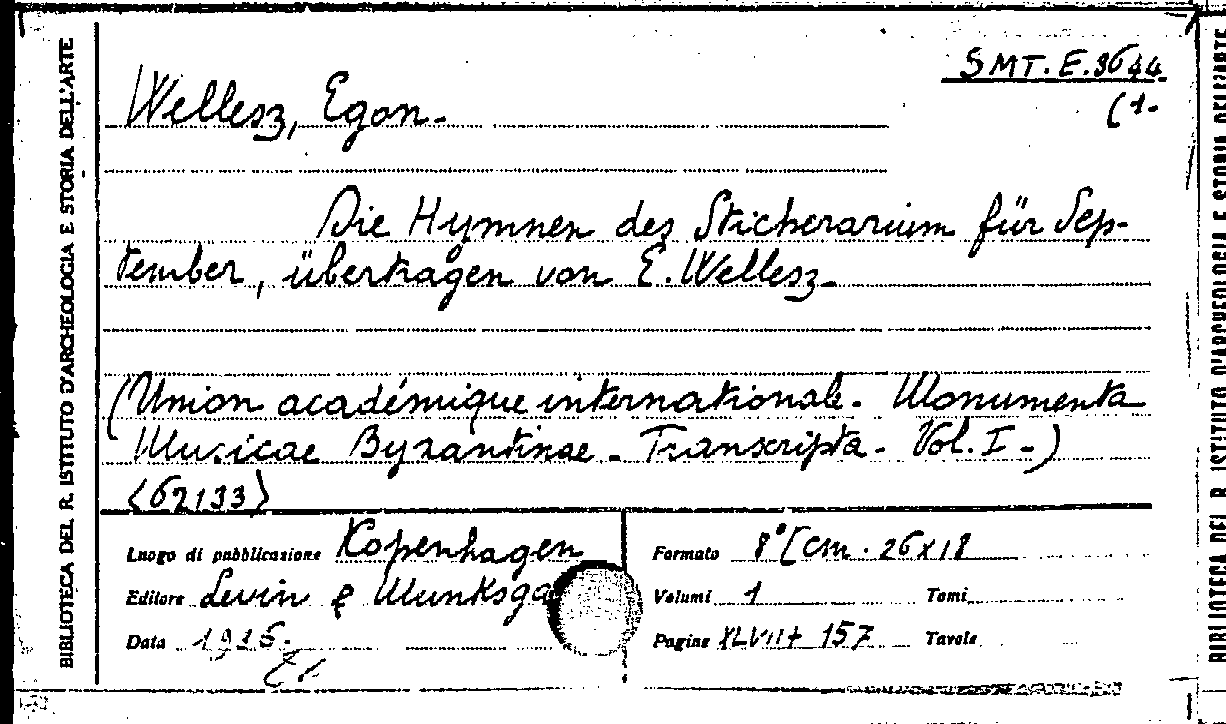 BIBLIOTECA DEL R. ISTITUTO D'ARCHEOLOGIA E STORIA DELL'ARTE
SMT. E. 3644
(1-
Wellesz, Egon.
Die Hymnen des Sticherarium für Sep-
tember, übertragen von E. Wellesz.
(Union académique internationale. Monumenta
Musicae Byzantinae. Transcripta. Vol. I.)
(62133)
Luogo di pubblicazione Kopenhagen
Editore Levin & Munksga
Data 1936.
Formato 8° [cm. 26x18
Volumi 1 Tomi
Pagine XLVIII+157 Tavole
BIBLIOTECA DEL R. ISTITUTO D'ARCHEOLOGIA E STORIA DELL'ARTE